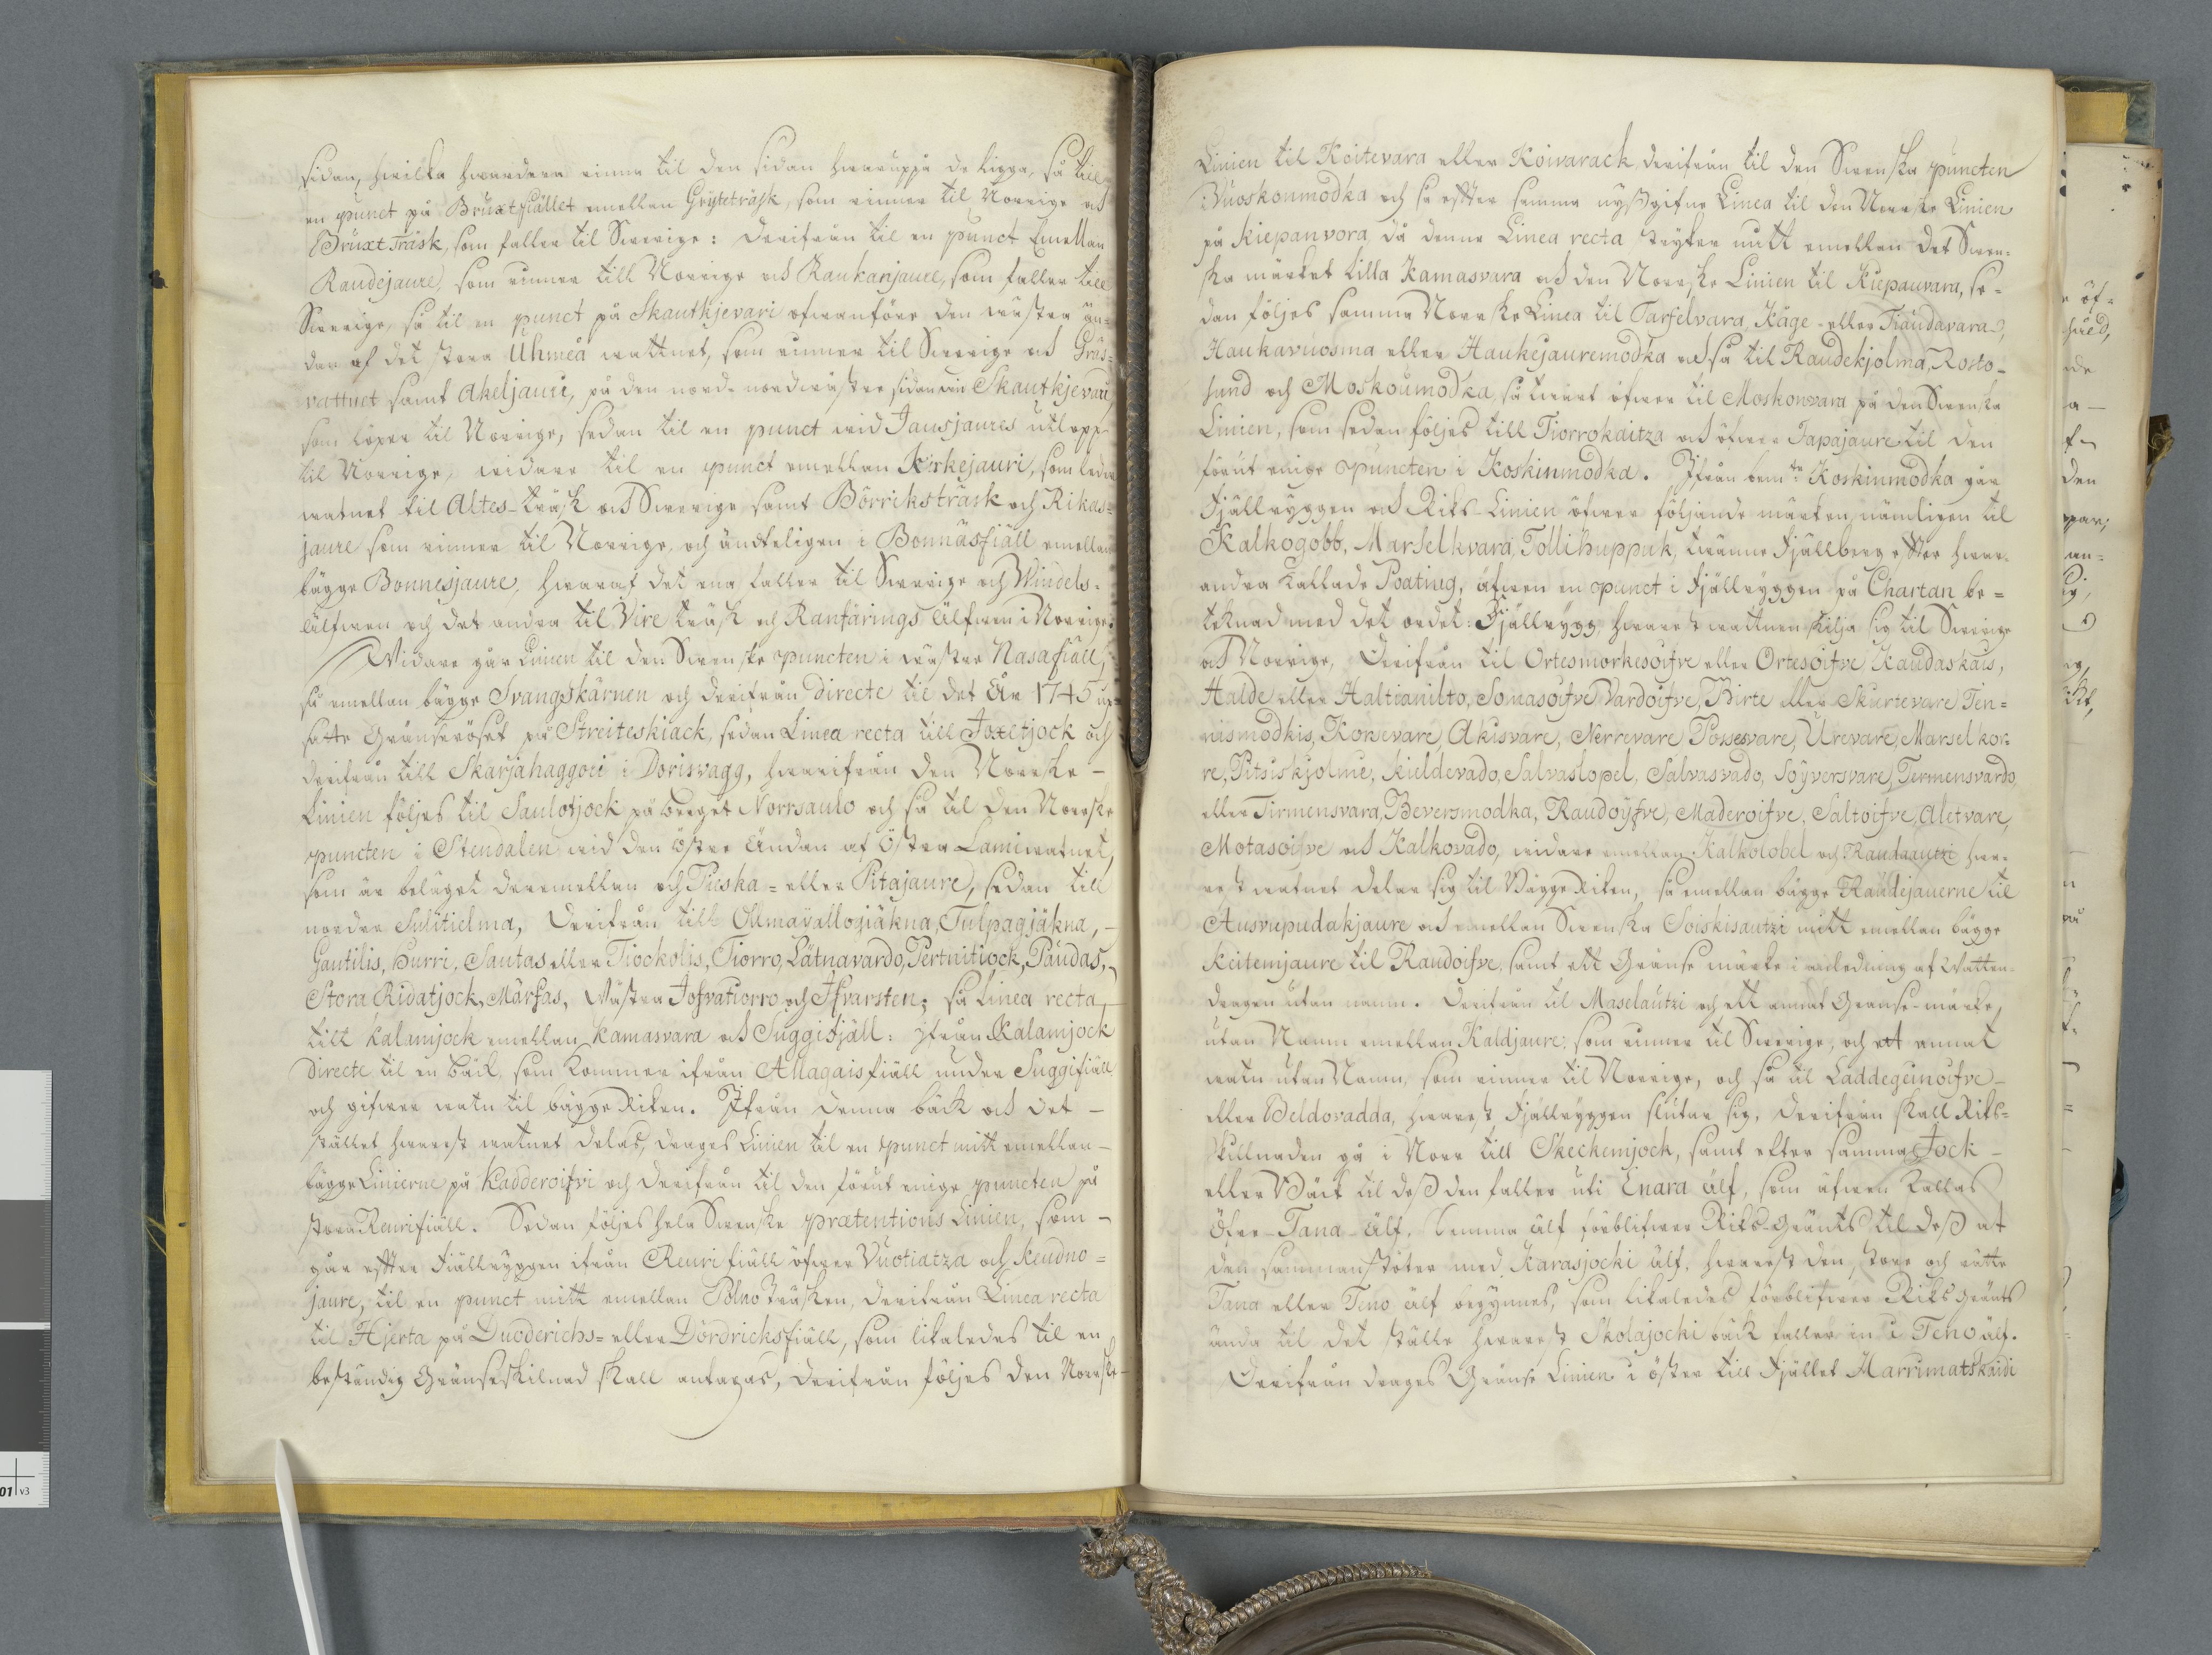 sidan, hvilka hvardera rinna til den sidan hvaruppå de ligga, så till
en punct på Bruxtfiället emellan Gryteträsk, som rinner til Norrige och
Bruxt Träsk, som faller til Swerige: derifrån til en punct Emellan
Raudejaure, som rinner till Norrige och Raukarjaure, som faller till
Swerige, så til en punct på Skautkjevari ofwanföre den wästra än=
dan af det stora Uhmeå wattnet, som rinner til Swerige och Gräs=
vattnet samt Akeljauri, på den nord-nordwästre sidan om Skautkjevari,
som löper til Norrige, sedan til en punct wid Jausjaures utlopp
til Norrige, widare til en punct emellan Kirkejauri, som leder
watnet til Altes-träsk och Swerige samt Börriksträsk och Rikas=
jaure som rinner til Norrige, och ändteligen i Bonnäsfiäll emellan
bägge Bonnesjaure, hwaraf det ena faller til Swerige och Windels=
älfwen och det andra til Vire träsk och Ranfärings älfwen i Norrige.
Widare går Linien til den Swenske puncten i wästra Nasafiäll,
så emellan bägge Svangskärnen och derifrån directe til det År 1745 up=
satte Gränseröset på Streiteskiack, sedan Linea recta till Joxetjock och
derifrån till Skarjahaggoei i Dorisvagg, hwarifrån den Norrske –
Linien följes til Saulotjock på berget Norrsaulo och så til den Norrske
puncten i Stendalen wid den östre ändan af östra Lamiwatnet,
som är beläget deremellan och Pieska= eller Pitajaure, sedan till
nordre Sulitielma, derifrån till Ollmavallogjäkna, Tulpagjäkna, –
Gautilis, Hurri, Sautas eller Tiockolis, Tiorro, Lätnavardo, Pertuitiock, Paudas, –
Stora Ridatjock, Märfas, wästra Jofvatiorro och Ifvarsten; så Linea recta, –
till Kalamjock emellan Kamasvara och Suggifjäll: ifrån Kalamjock
directe til en bäck, som kommer ifrån Allagaisfiäll under Suggifiäll
och gifwer watn til bägge Riken. Ifrån denna bäck och det –
stället hwarest watnet delas, drages Linien til en punct mitt emellan –
bägge Linierne på Kadderoifvi och derifrån til den förut enige puncten på
stora Reurifiäll. Sedan följes hela Swenske prætentions Linien, som –
går effter Fiällryggen ifrån Reurifiäll öfwer Vuotiatza och Keudno=
jaure, til en punct mitt emellan Polno träsken, derifrån Linea recta
til Hjerta på Duoderichs= eller Dördricksfiäll, som likaledes til en
beständig Gränseskilnad skall antagas, derifrån följes den Norrske –
Linien til Koitevara eller Koivarack derifrån til den Swenska puncten
Vuoskonmodka och så effter samma uysgifne Linea til den Norrske Linien
på Kiepanvora, då denna Linea recta stryker mitt emellan det Swen=
ska märket Lilla Kamasvara och den Norrske Linien til Kiepauvara, se=
dan följes samma Norrske Linea til Tarfelvara, Käge- eller Tiaudavara,
Haukavuosma eller Haukejauremodka och så til Raudekjolma, Rosto=
sund och Moskoumodka, så twert öfwer til Moskonvara på den Swenska
Linien, som sedan följes till Tiorrokaitza och öfwer Tapajaure til den
förut enige puncten i Koskinmodka. Ifrån bem:te Koskinmodka går
Fjällryggen och Riks-Linien öfwer följande märken, nämligen til
Kalkogobb, Marselkvara, Tollihuppuk, twänne Fjällberg effter hwar-
andra kallade Poating, äfwen en punct i Fjällryggen på Chartan be=
teknad med det ordet: Fjällrygg, hwarest wattnen skilja sig til Swerige
och Norrige, Derifrån til Ortesmorkesoifve eller Ortesoifve Kaudaskais,
Halde eller Haltianicto, Somasoifve Vardoifve, Birte eller Skurtevare Tin=
nismodkis, Korsevare, Akisvare, Nerrevare Possesvare, Urevare, Marsel kor=
re, Pitsuskjolme, Kieldevado, Salvaslopel, Salvasvado, Soyversvare, Termensvardo,
eller Tirmensvara, Beversmodka, Raudoyfve, Maderoifve, Saltoifve, Aletvare,
Motasoifve och Kalkovado, widare emellan Kalkolobel och Raudaautzi hwa-
rest watnet delar sig til Bägge Riken, så emellan bägge Raudejauerne til
Ausrupudakjaure och emellan Swenska Soiskisautzi mitt emellan bägge
Keitemjaure til Raudoifve, samt ett Gränse märke i anledning af Watten-
dragen utan namn. Derifrån til Maselautzi och ett annat Gränse-märke,
utan Namn emellan Kaldjaure, som rinner til Swerige, och ett annat
watn utan Namn, som rinner til Norrige, och så til Laddegeinoifve –
eller Beldovadda, hwarest Fjällryggen slutar sig. Derifrån skall Riks=
skillnaden gå i Norr till Skeckemjock, samt efter samma Jock –
eller Bäck til dess den faller uti Enara älf, som äfwen kallas
Öfre-Tana-älf. Samma älf förblifwer Riks Gränts til dess at
den sammanstöter med Karasjocki älf, hwarest den store och rätta
Tana eller Teno älf begynnes, som likaledes förblifwer Riks gränts
ända til det ställe hwarest Skolajocki bäck faller in i Teno älf.
Derifrån drages Gränse Linien i öster till Fjället Harrimatskaidi